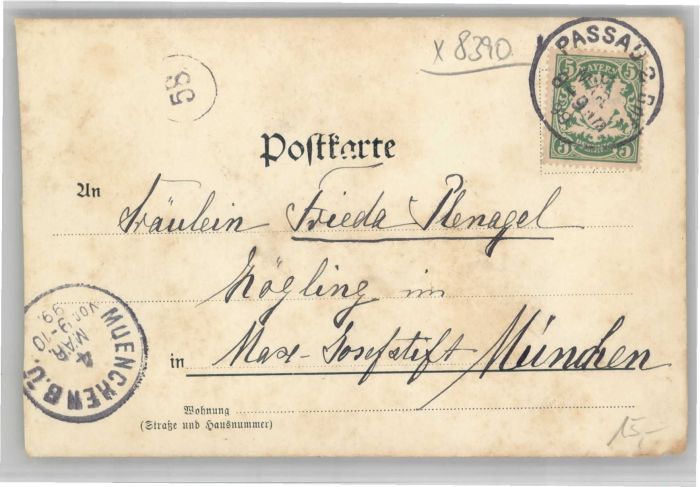 x 8390
58
PASSAU 2
5 BAYERN 5
5 5
Postkarte
An
Fräulein Frieda Plenagel
Zögling im
in Max-Josefstift München
Wohnung
(Straße und Hausnummer)
MUENCHEN B.Ü.
4
MAR.
Vor. 9-10
99.
15,-